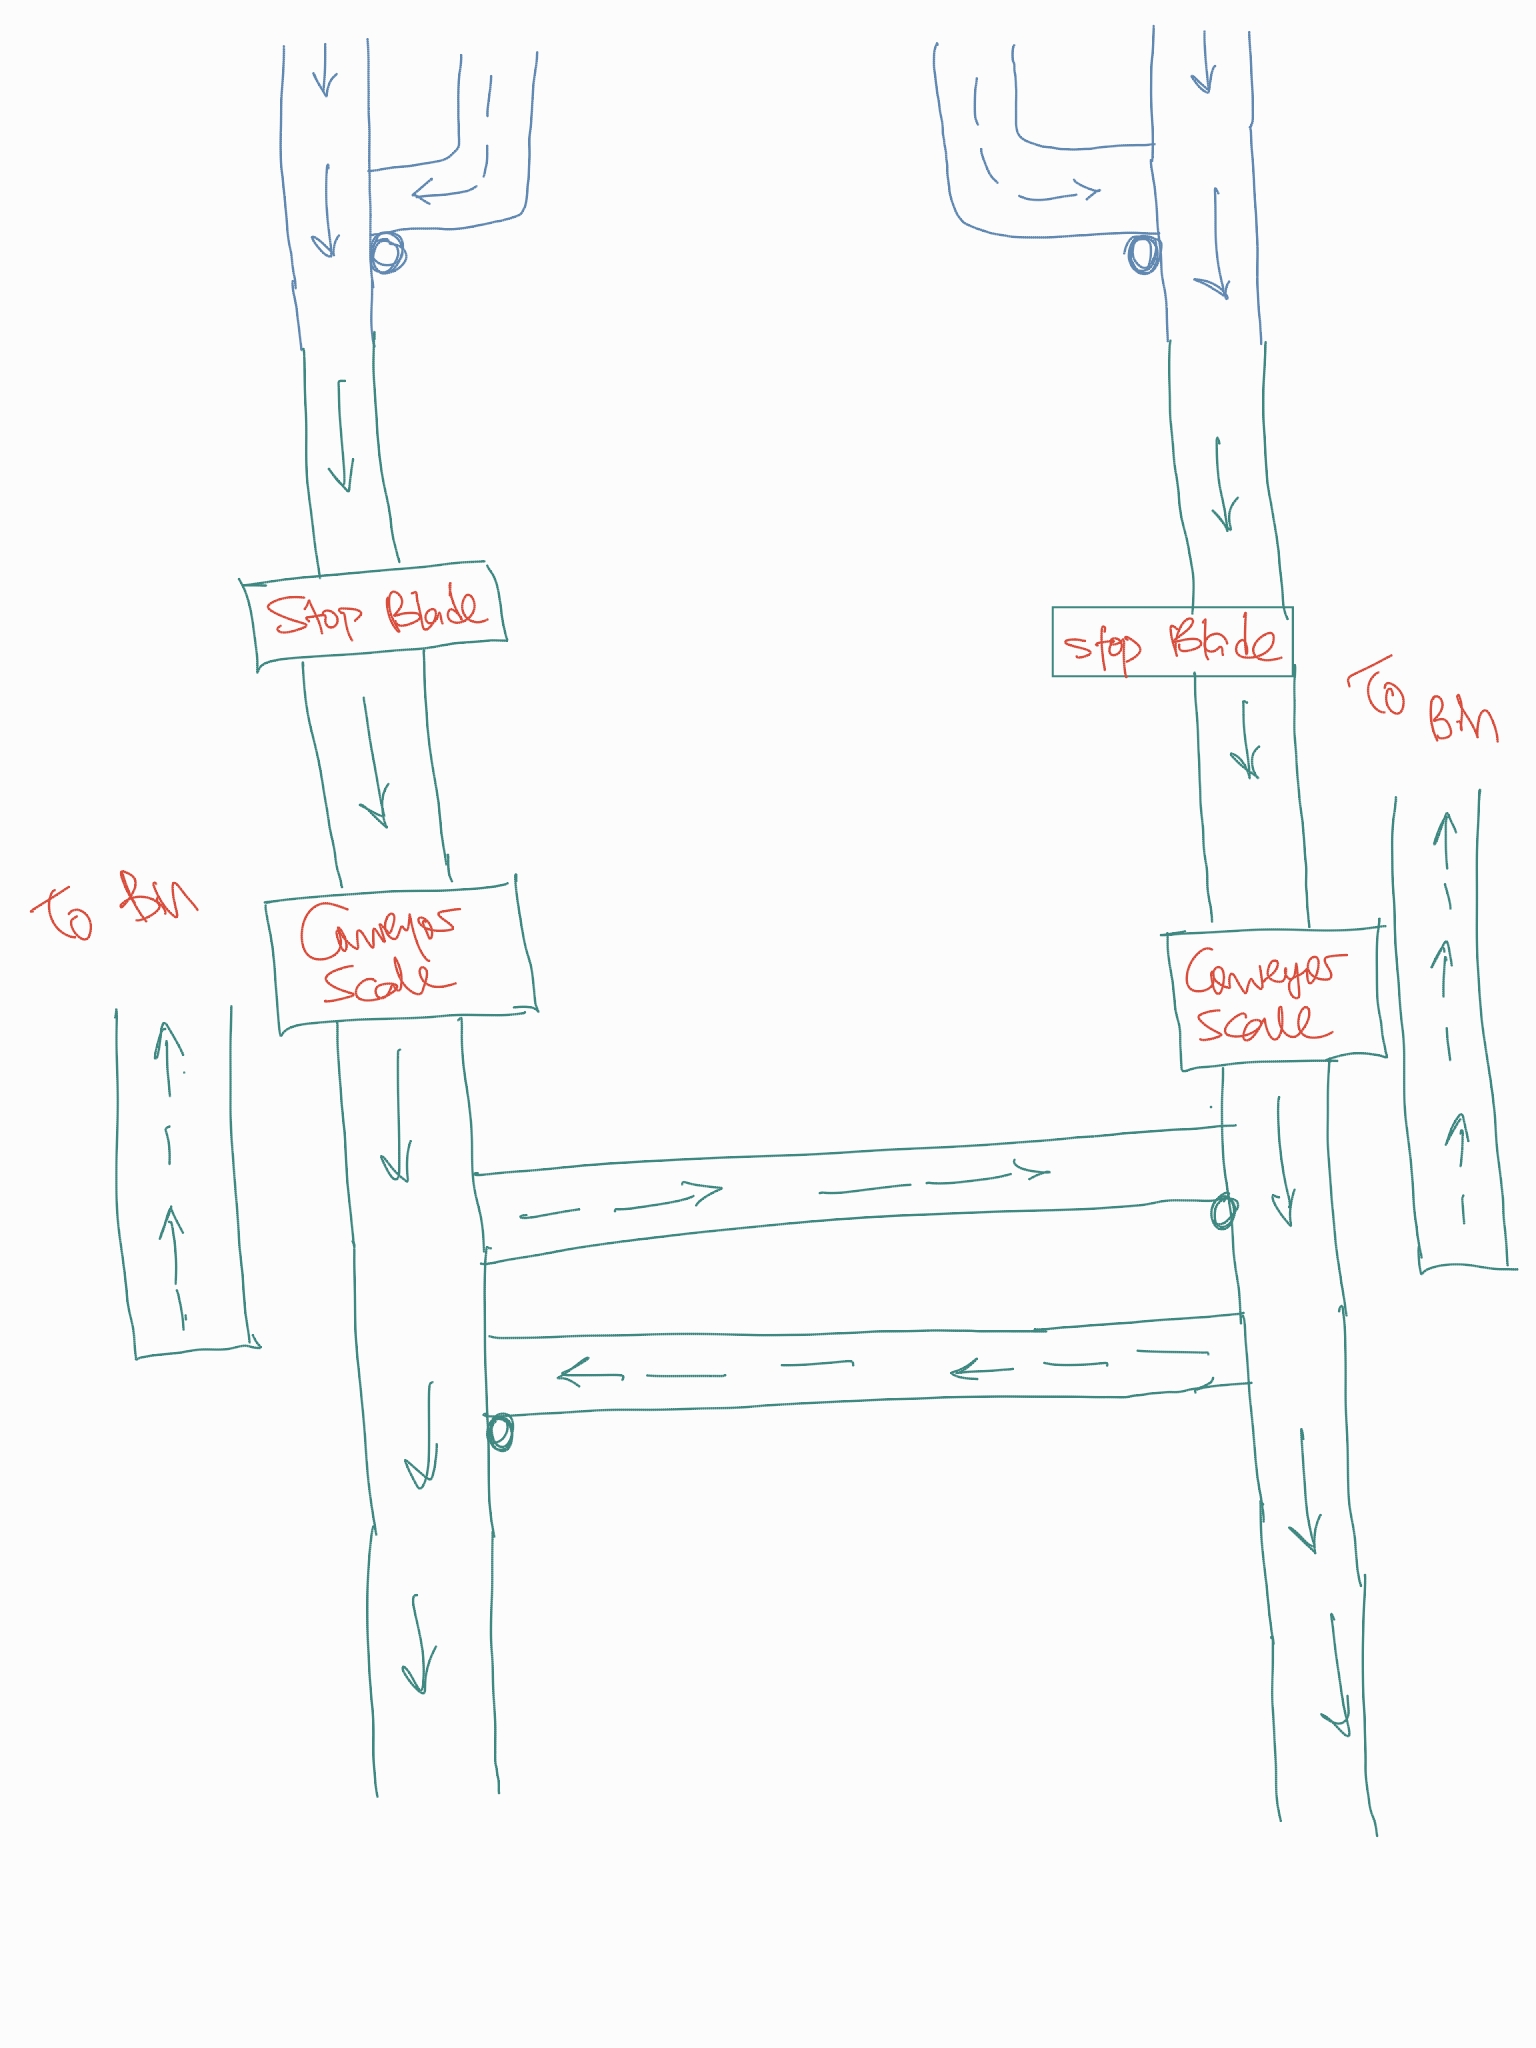 Stop Blade
Stop Blade
To Bin
To Bin
Conveyor
Scale
Conveyor
Scale